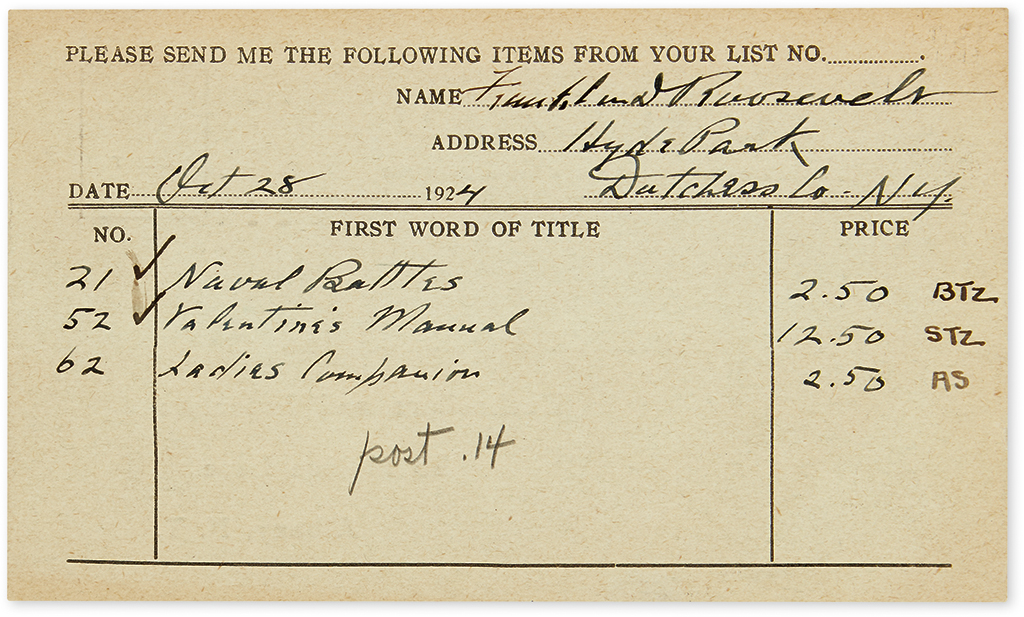 PLEASE SEND ME THE FOLLOWING ITEMS FROM YOUR LIST NO. .................
NAME Franklin D Roosevelt
ADDRESS Hyde Park
DATE Oct 28 1924 Dutchess Co - N.Y.
NO. FIRST WORD OF TITLE PRICE
21 ✓ Naval Battles 2.50 BTZ
52 ✓ Valentine's Manual 12.50 STZ
62 Ladies Companion 2.50 AS
post .14